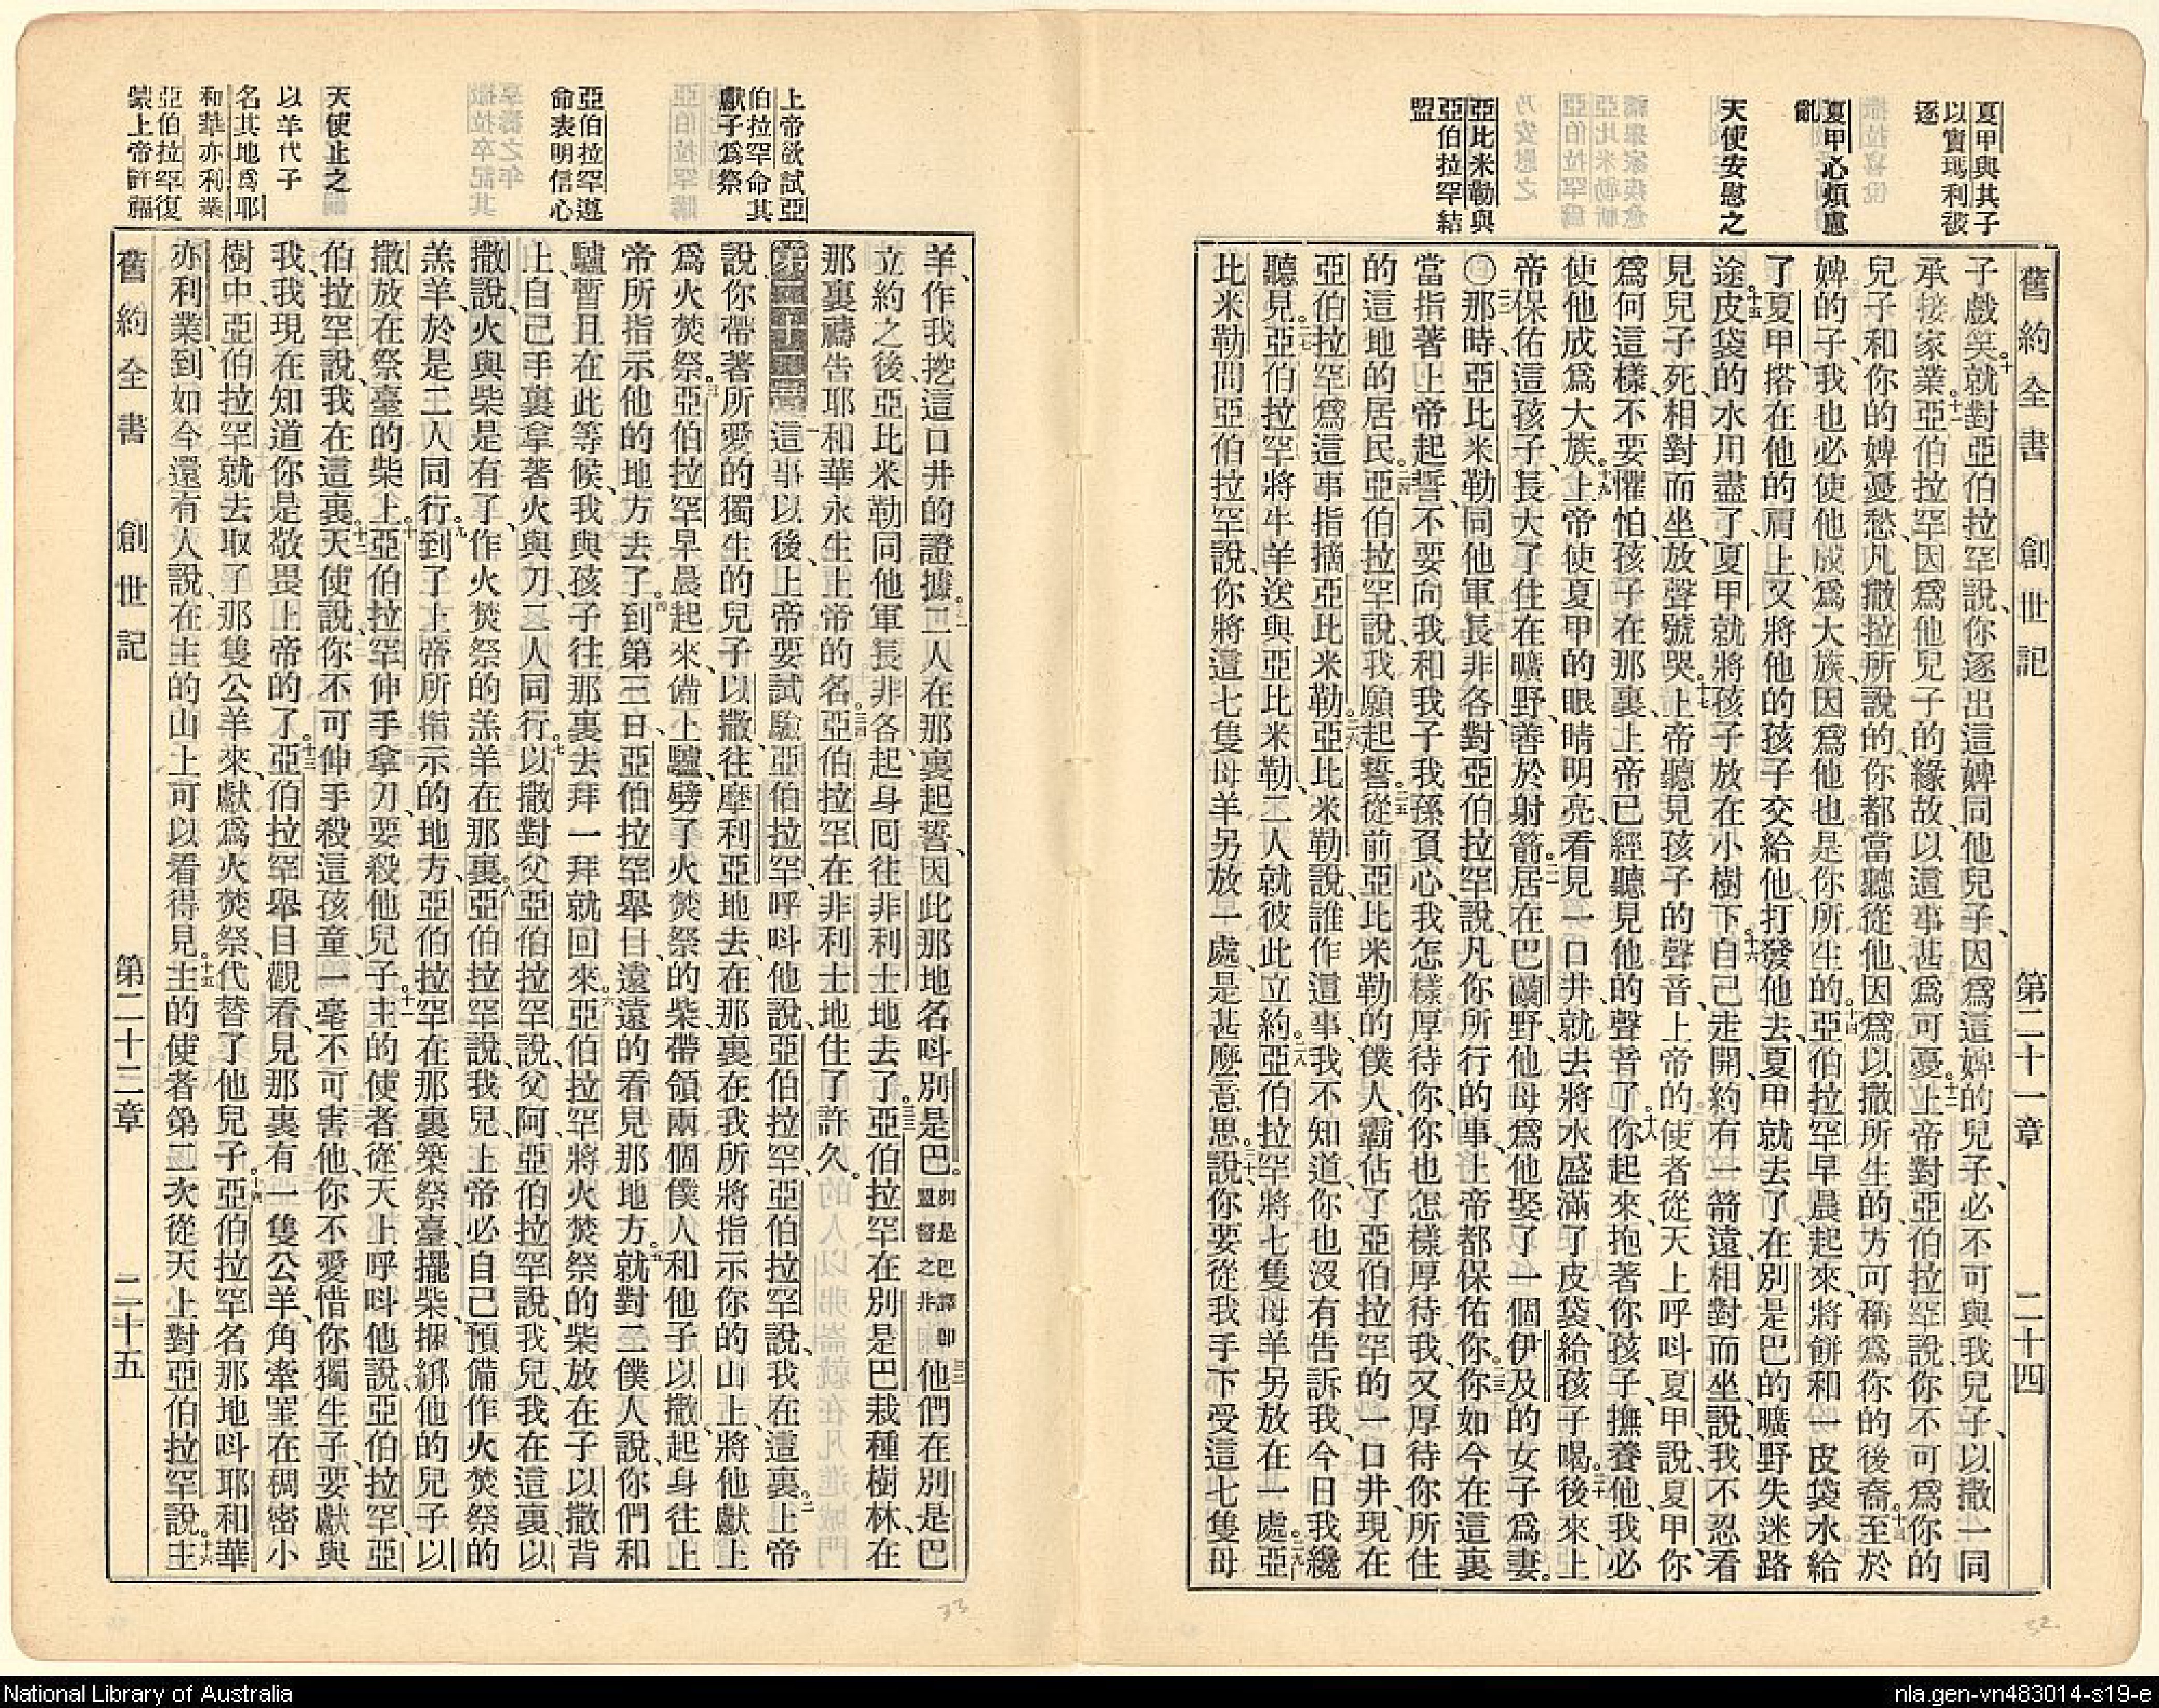 舊約全書 創世記 第二十一章 二十四
夏甲與其子
以實瑪利被
逐
夏甲必煩慮
亂
天使安慰之
亞比米勒與
亞伯拉罕結
盟
子戲笑、十就對亞伯拉罕說、你逐出這婢同他兒子、因爲這婢的兒子、必不可與我兒子、以撒一同
承接家業。十一亞伯拉罕因爲他兒子的緣故、以這事甚爲可憂。十二上帝對亞伯拉罕說、你不可爲你的
兒子和你的婢憂愁、凡撒拉所說的、你都當聽從他、因爲以撒所生的、方可稱爲你的後裔。十三至於
婢的子、我也必使他成爲大族、因爲他也是你所生的。十四亞伯拉罕早晨起來、將餅和一皮袋水給
了夏甲、搭在他的肩上、又將他的孩子交給他、打發他去、夏甲就去了、在別是巴的曠野失迷路
途。十五皮袋的水用盡了、夏甲就將孩子放在小樹下。十六自己走開、約有一箭遠、相對而坐、說、我不忍看
見兒子死、相對而坐、放聲號哭。十七上帝聽見孩子的聲音、上帝的使者從天上呼呌夏甲、說、夏甲、你
爲何這樣、不要懼怕、孩子在那裏、上帝已經聽見他的聲音了。十八你起來、抱著你孩子、撫養他、我必
使他成爲大族。十九上帝使夏甲的眼睛明亮、看見一口井、就去將水盛滿了皮袋、給孩子喝。二十後來上
帝保佑這孩子、長大了、住在曠野、善於射箭。二一居在巴蘭野、他母爲他娶了一個伊及的女子爲妻。
〇二二那時、亞比米勒同他軍長非各、對亞伯拉罕說、凡你所行的事、上帝都保佑你。二三你如今在這裏
當指著上帝起誓、不要向我和我子我孫負心、我怎樣厚待你、你也怎樣厚待我、又厚待你所住
的這地的居民。二四亞伯拉罕說、我願起誓。二五從前亞比米勒的僕人、霸佔了亞伯拉罕的一口井、現在
亞伯拉罕爲這事指摘亞比米勒。二六亞比米勒說、誰作這事、我不知道、你也沒有告訴我、今日我纔
聽見。二七亞伯拉罕將牛羊送與亞比米勒、二人就彼此立約。二八亞伯拉罕將七隻母羊另放在一處。二九亞
比米勒問亞伯拉罕說、你將這七隻母羊另放一處、是甚麼意思。三十說、你要從我手下受這七隻母
上帝欲試亞
伯拉罕命其
獻子爲祭
亞伯拉罕遵
命表明信心
天使止之
以羊代子
名其地爲耶
和華亦利業
亞伯拉罕復
蒙上帝許福
羊、作我挖這口井的證據。三一二人在那裏起誓、因此那地名呌別是巴。別是巴譯卽盟誓之井三二他們在別是巴
立約之後、亞比米勒同他軍長非各起身囘往非利士地去了。三三亞伯拉罕在別是巴栽種樹林、在
那裏禱告耶和華永生上帝的名。三四亞伯拉罕在非利士地住了許久。
第二十二章 一這事以後、上帝要試驗亞伯拉罕、呼呌他說、亞伯拉罕、亞伯拉罕說、我在這裏。二上帝
說、你帶著所愛的獨生的兒子以撒、往摩利亞地去、在那裏在我所將指示你的山上、將他獻上
爲火焚祭。三亞伯拉罕早晨起來、備上驢、劈了火焚祭的柴、帶領兩個僕人和他子以撒、起身往上
帝所指示他的地方去了。四到第三日、亞伯拉罕舉目、遠遠的看見那地方。五就對二僕人說、你們和
驢暫且在此等候、我與孩子往那裏去拜一拜、就回來。六亞伯拉罕將火焚祭的柴放在子以撒背
上、自己手裏拿著火與刀、二人同行。七以撒對父亞伯拉罕說、父阿、亞伯拉罕說、我兒、我在這裏、以
撒說、火與柴是有了、作火焚祭的羔羊在那裏。八亞伯拉罕說、我兒、上帝必自己預備作火焚祭的
羔羊、於是二人同行。九到了上帝所指示的地方、亞伯拉罕在那裏築祭臺、擺柴、捆綁他的兒子以
撒、放在祭臺的柴上。十亞伯拉罕伸手拿刀、要殺他兒子。十一主的使者、從天上呼呌他說、亞伯拉罕、亞
伯拉罕說、我在這裏。十二天使說、你不可伸手殺這孩童、一毫不可害他、你不愛惜你獨生子、要獻與
我、我現在知道你是敬畏上帝的了。十三亞伯拉罕舉目觀看、見那裏有一隻公羊、角牽罣在稠密小
樹中、亞伯拉罕就去取了那隻公羊來、獻爲火焚祭、代替了他兒子。十四亞伯拉罕名那地呌耶和華
亦利業、到如今還有人說、在主的山上可以看得見。十五主的使者第二次從天上對亞伯拉罕說。十六主
舊約全書 創世記 第二十二章 二十五
33
32
National Library of Australia
nla.gen-vn483014-s19-e